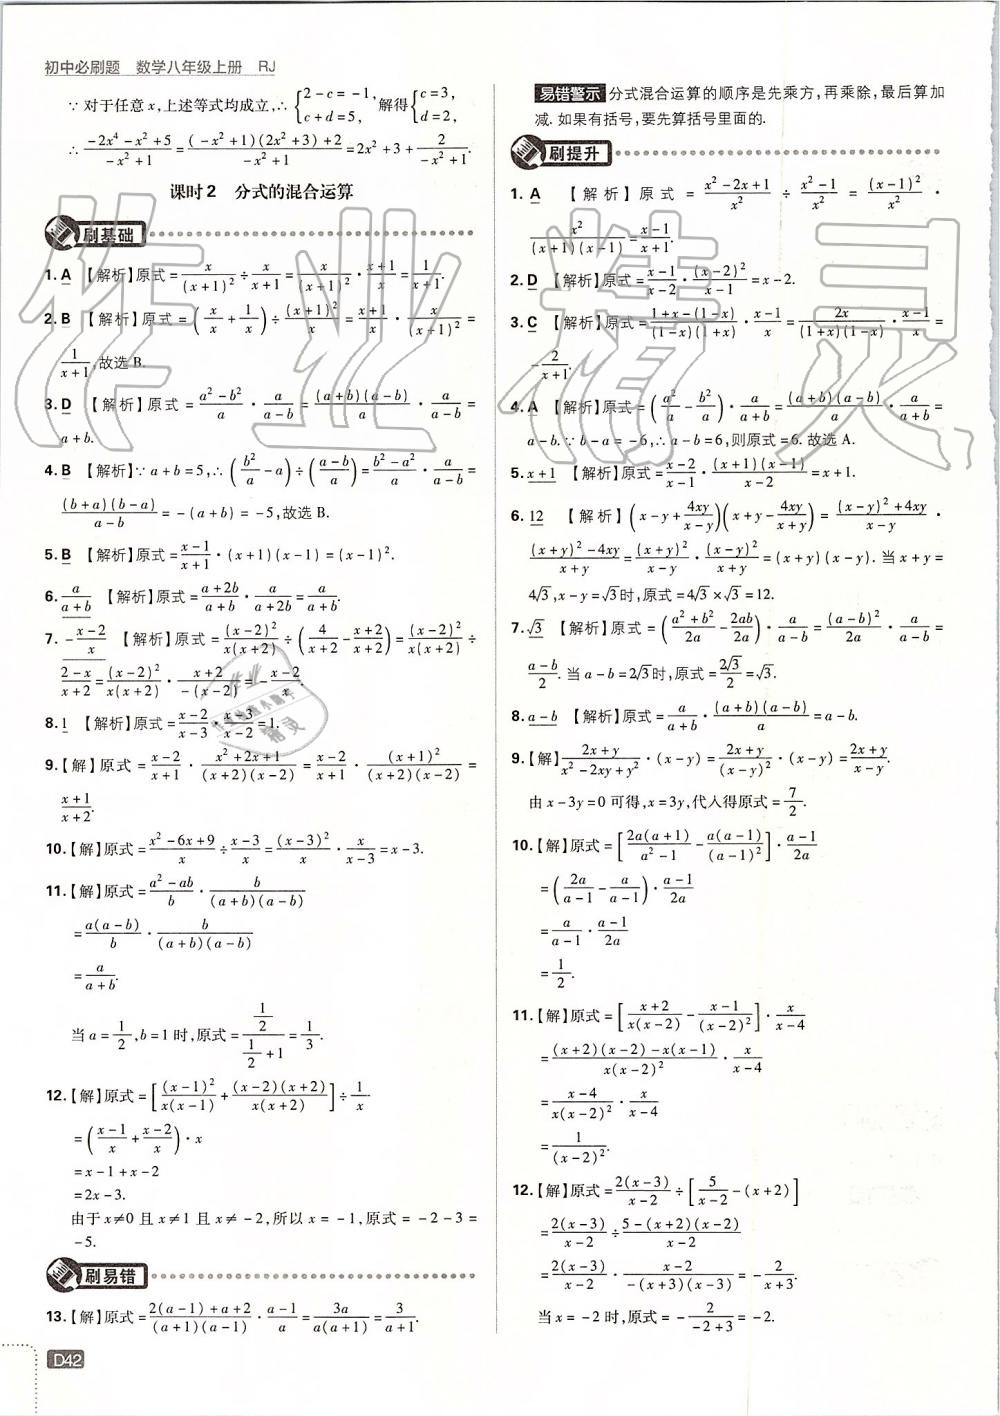 初中必刷题 数学八年级上册 RJ
∵对于任意 x,上述等式均成立,∴{2-c=-1, c+d=5, 解得{c=3, d=2,
∴(-2x⁴-x²+5)/(-x²+1)=((-x²+1)(2x²+3)+2)/(-x²+1)=2x²+3+2/(-x²+1).
课时2 分式的混合运算
刷基础
1.A 【解析】原式=x/(x+1)²÷x/(x+1)=x/(x+1)²·(x+1)/x=1/(x+1).
2.B 【解析】原式=(x/x+1/x)÷(x+1)²/x=(x+1)/x·x/(x+1)²=
1/(x+1),故选 B.
3.D 【解析】原式=(a²-b²)/a·a/(a-b)=((a+b)(a-b))/a·a/(a-b)=
a+b.
4.B 【解析】∵a+b=5,∴(b²/a-a)÷((a-b)/a)=(b²-a²)/a·a/(a-b)=
((b+a)(b-a))/(a-b)=-(a+b)=-5,故选 B.
5.B 【解析】原式=(x-1)/(x+1)·(x+1)(x-1)=(x-1)².
6.a/(a+b) 【解析】原式=(a+2b)/(a+b)·a/(a+2b)=a/(a+b).
7.-(x-2)/x 【解析】原式=(x-2)²/(x(x+2))÷(4/(x+2)-(x+2)/(x+2))=(x-2)²/(x(x+2))÷
(2-x)/(x+2)=(x-2)²/(x(x+2))·(x+2)/(-(x-2))=-(x-2)/x.
8.1 【解析】原式=(x-2)/(x-3)·(x-3)/(x-2)=1.
9.【解】原式=(x-2)/(x+1)·(x²+2x+1)/((x+2)(x-2))=(x-2)/(x+1)·(x+1)²/((x+2)(x-2))=
(x+1)/(x+2).
10.【解】原式=(x²-6x+9)/x÷(x-3)/x=(x-3)²/x·x/(x-3)=x-3.
11.【解】原式=(a²-ab)/b·b/((a+b)(a-b))
=(a(a-b))/b·b/((a+b)(a-b))
=a/(a+b).
当 a=1/2,b=1 时,原式=(1/2)/(1/2+1)=1/3.
12.【解】原式=[(x-1)²/(x(x-1))+((x-2)(x+2))/(x(x+2))]÷1/x
=((x-1)/x+(x-2)/x)·x
=x-1+x-2
=2x-3.
由于 x≠0 且 x≠1 且 x≠-2,所以 x=-1,原式=-2-3=
-5.
刷易错
13.【解】原式=(2(a-1)+a+2)/((a+1)(a-1))·(a-1)/a=3a/(a(a+1))=3/(a+1).
D42
易错警示 分式混合运算的顺序是先乘方,再乘除,最后算加
减.如果有括号,要先算括号里面的.
刷提升
1.A 【解析】原式=(x²-2x+1)/x²÷(x²-1)/x²=(x-1)²/x²·
x²/((x+1)(x-1))=(x-1)/(x+1).
2.D 【解析】原式=(x-1)/(x-2)·(x-2)²/(x-1)=x-2.
3.C 【解析】原式=(1+x-(1-x))/((1-x)(1+x))·(x-1)/x=2x/((1+x)(1-x))·(x-1)/x=
-2/(x+1).
4.A 【解析】原式=(a²/a-b²/a)·a/(a+b)=((a+b)(a-b))/a·a/(a+b)=
a-b.∵b-a=-6,∴a-b=6,则原式=6.故选 A.
5.x+1 【解析】原式=(x-2)/(x-1)·((x+1)(x-1))/(x-2)=x+1.
6.12 【解析】(x-y+4xy/(x-y))(x+y-4xy/(x+y))=((x-y)²+4xy)/(x-y)·
((x+y)²-4xy)/(x+y)=(x+y)²/(x-y)·(x-y)²/(x+y)=(x+y)(x-y).当 x+y=
4√3,x-y=√3时,原式=4√3×√3=12.
7.√3 【解析】原式=((a²+b²)/2a-2ab/2a)·a/(a-b)=(a-b)²/2a·a/(a-b)=
(a-b)/2.当 a-b=2√3时,原式=2√3/2=√3.
8.a-b 【解析】原式=a/(a+b)·((a+b)(a-b))/a=a-b.
9.【解】(2x+y)/(x²-2xy+y²)·(x-y)=(2x+y)/(x-y)²·(x-y)=(2x+y)/(x-y).
由 x-3y=0 可得,x=3y,代入得原式=7/2.
10.【解】原式=[2a(a+1)/(a²-1)-a(a-1)/(a-1)²]·(a-1)/2a
=(2a/(a-1)-a/(a-1))·(a-1)/2a
=a/(a-1)·(a-1)/2a
=1/2.
11.【解】原式=[(x+2)/(x(x-2))-(x-1)/(x-2)²]·x/(x-4)
=((x+2)(x-2)-x(x-1))/(x(x-2)²)·x/(x-4)
=(x-4)/(x(x-2)²)·x/(x-4)
=1/(x-2)².
12.【解】原式=2(x-3)/(x-2)÷[5/(x-2)-(x+2)]
=2(x-3)/(x-2)÷(5-(x+2)(x-2))/(x-2)
=2(x-3)/(x-2)·(x-2)/(-(x+3)(x-3))=-2/(x+3).
当 x=-2 时,原式=-2/(-2+3)=-2.
作业精灵